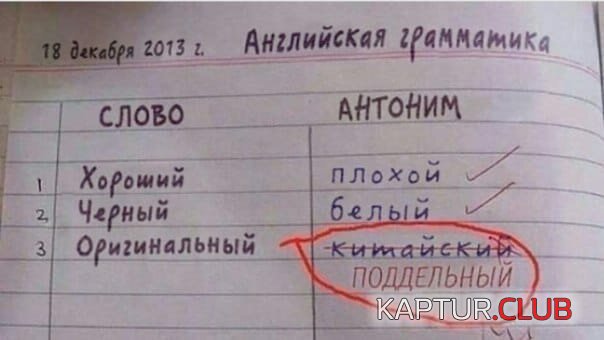 18 декабря 2013 г. Английская грамматика
СЛОВО АНТОНИМ
1 Хороший плохой
2 Черный белый
3 Оригинальный китайский
ПОДДЕЛЬНЫЙ
KAPTUR.CLUB